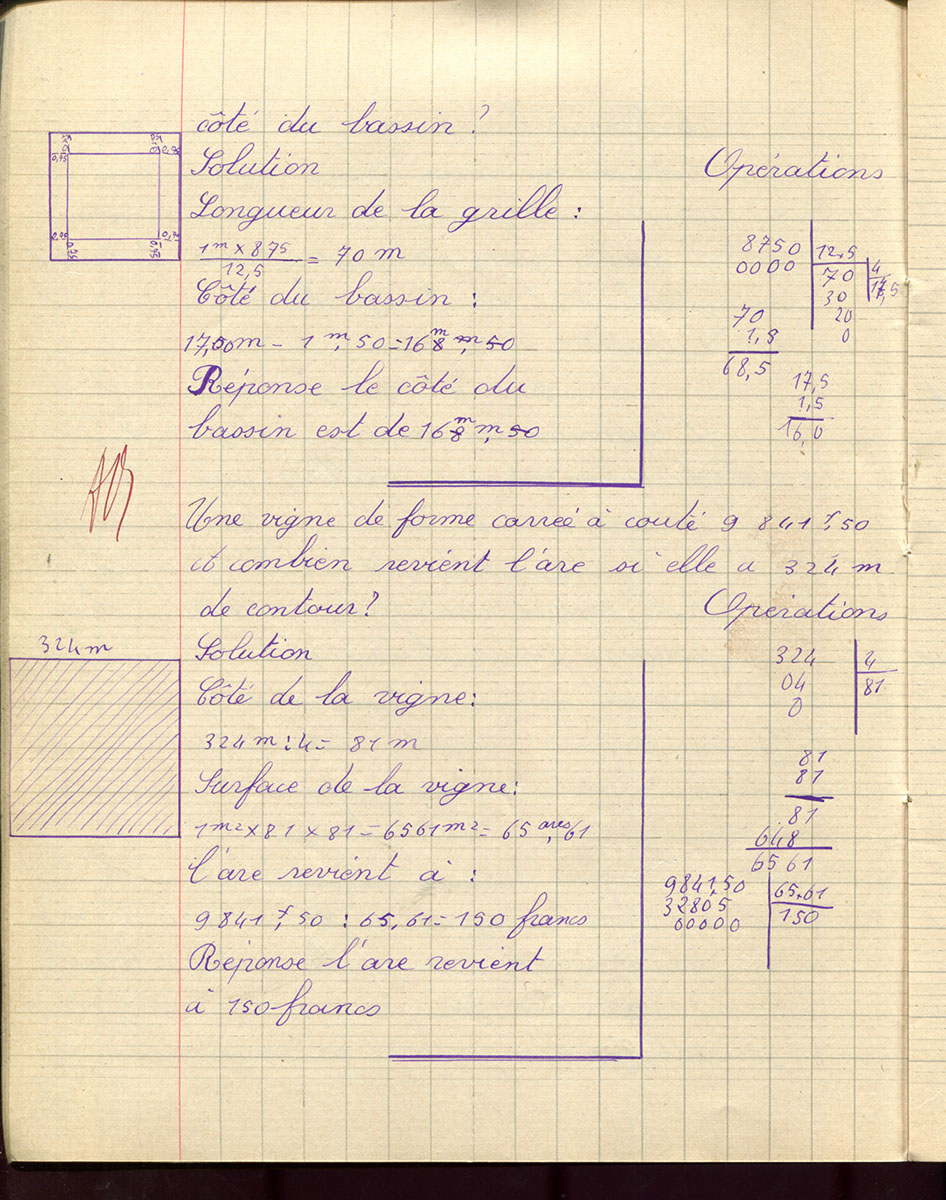 côté du bassin ?
Solution
Opérations
Longueur de la grille :
1m × 875
12,5
= 70 m
Côté du bassin :
17,50m - 1m,50 = 16m
Réponse le côté du
bassin est de 16m
8750 12,5
0000 70 4
30 17,5
20
0
70
1,5
68,5
17,5
1,5
16,0
0,75
0,75
0,75
Une vigne de forme carreé à couté 9 841f,50
combien revient l'are si elle a 324 m
de contour ?
Opérations
324m
Solution
Côté de la vigne :
324 m : 4 = 81 m
Surface de la vigne :
1m² × 81 × 81 = 6561 m² = 65 ares,61
l'are revient à :
9 841f,50 : 65,61 = 150 francs
Réponse l'are revient
à 150 francs
324 4
04 81
0
81
81
81
648
6561
9841,50 65,61
32805 150
00000